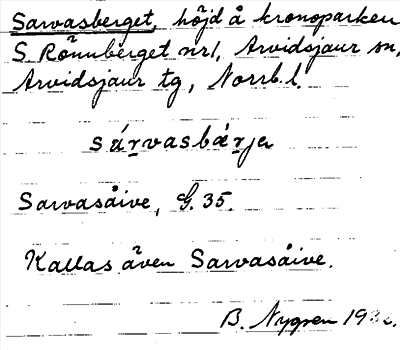 Sarvasberget, höjd å kronoparken
S. Rönnberget nr 1, Arvidsjaur sn,
Arvidsjaur tg, Norrb. l.
sárvasbärje
Sarvasåive, G. 35.
Kallas även Sarvasåive.
B. Nygren